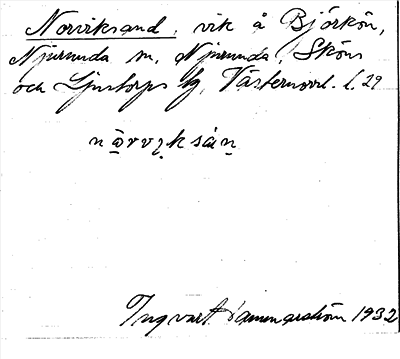 Norviksand, vik å Björkön,
Njurunda sn, Njurunda, Sköns
och Ljustorps tg, Västernorrl. l. 29
nǫ̀rvı̣ksán̥
Ingvart 1932